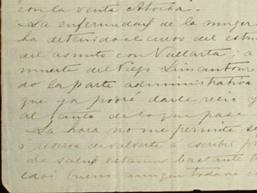 con la venta Mocha.
La enfermedad de la mujer
ha detenido el curso del
del asunto con Vallarta, a
muerte del Viejo Limantour
do la parte administrativa
que ya podrá darle
al tanto de lo que pase
La hora no me permite
o reserva devolverte a escribir
de salud estamos bastante
casi bueno aunque todavía